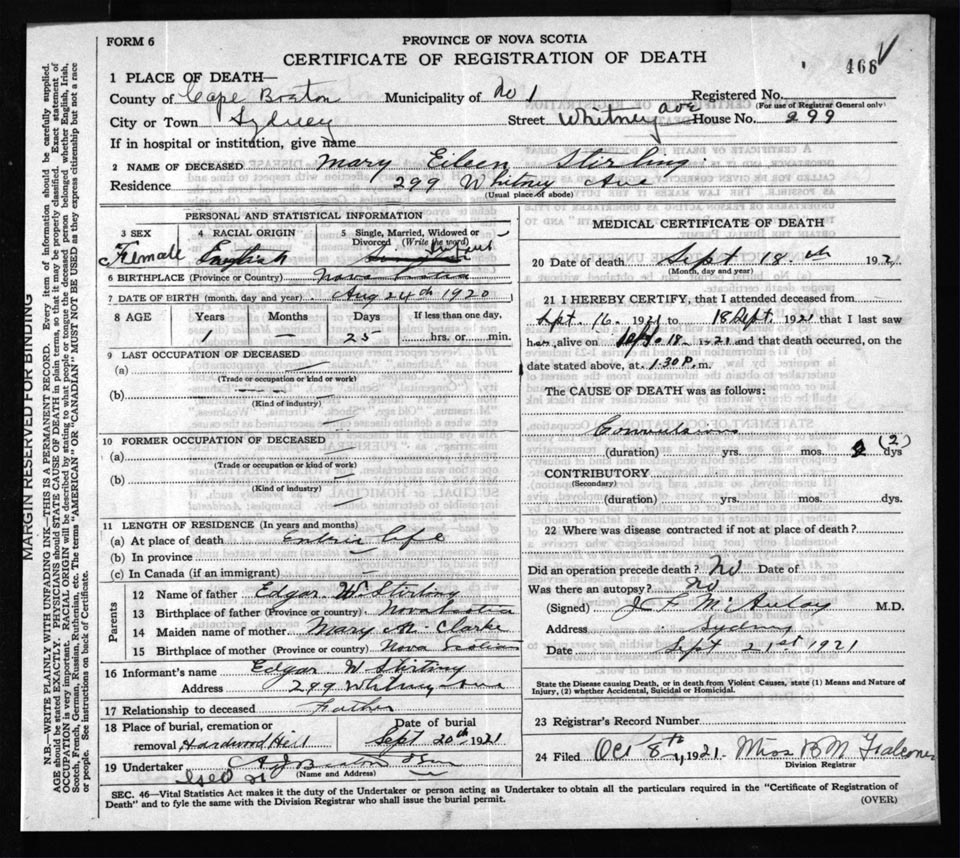 FORM 6
PROVINCE OF NOVA SCOTIA
CERTIFICATE OF REGISTRATION OF DEATH
466
1 PLACE OF DEATH—
County of Cape Breton Municipality of No 1 Registered No.
(For use of Registrar General only)
City or Town Sydney Street Whitney Ave House No. 299
If in hospital or institution, give name
2 NAME OF DECEASED Mary Eileen Stirling
Residence 299 Whitney Ave
(Usual place of abode)
PERSONAL AND STATISTICAL INFORMATION
3 SEX Female
4 RACIAL ORIGIN English
5 Single, Married, Widowed or Divorced (Write the word) Infant
6 BIRTHPLACE (Province or Country) Nova Scotia
7 DATE OF BIRTH (month, day and year) Aug 24th 1920
8 AGE Years Months Days If less than one day,
1 — 25 hrs. or min.
9 LAST OCCUPATION OF DECEASED
(a)
(Trade or occupation or kind or work)
(b)
(Kind of industry)
10 FORMER OCCUPATION OF DECEASED
(a)
(Trade or occupation or kind of work)
(b)
(Kind of industry)
11 LENGTH OF RESIDENCE (In years and months)
(a) At place of death Entire life
(b) In province
(c) In Canada (if an immigrant)
Parents
12 Name of father Edgar W Stirling
13 Birthplace of father (Province or country) Nova Scotia
14 Maiden name of mother Mary M. Clarke
15 Birthplace of mother (Province or Country) Nova Scotia
16 Informant's name Edgar W Stirling
Address 299 Whitney Ave
17 Relationship to deceased Father
18 Place of burial, cremation or removal Hardwood Hill
Date of burial Sept 20th 1921
19 Undertaker
(Name and Address)
MEDICAL CERTIFICATE OF DEATH
20 Date of death Sept 18th 1921
(Month, day and year)
21 I HEREBY CERTIFY, that I attended deceased from
Sept. 16. 1921 to 18 Sept. 1921 that I last saw
her alive on Sept. 18. 1921 and that death occurred, on the
date stated above, at 1.30 P. m.
The CAUSE OF DEATH was as follows:
Convulsions
(duration) yrs. mos. 2 (2) dys
CONTRIBUTORY
(Secondary)
(duration) yrs. mos. dys.
22 Where was disease contracted if not at place of death?
Did an operation precede death? No Date of
Was there an autopsy? No
(Signed) J F McAulay M.D.
Address Sydney
Date Sept 21st 1921
State the Disease causing Death, or in death from Violent Causes, state (1) Means and Nature of
Injury, (2) whether Accidental, Suicidal or Homicidal.
23 Registrar's Record Number
24 Filed Oct 8th, 1921. Miss B M Falconer
Division Registrar
SEC. 46—Vital Statistics Act makes it the duty of the Undertaker or person acting as Undertaker to obtain all the particulars required in the "Certificate of Registration of
Death" and to fyle the same with the Division Registrar who shall issue the burial permit.
(OVER)
MARGIN RESERVED FOR BINDING
N.B.—WRITE PLAINLY WITH UNFADING INK—THIS IS A PERMANENT RECORD. Every item of information should be carefully supplied.
AGE should be stated EXACTLY. PHYSICIANS should STATE CAUSE OF DEATH in plain terms, so that it may be properly classified. Exact statement of
OCCUPATION is very important. RACIAL ORIGIN will be described by stating to what people or tongue the deceased person belonged whether English, Irish,
Scotch, French, German, Russian, Ruthenian, etc. The terms "AMERICAN" OR "CANADIAN" MUST NOT BE USED as they express citizenship but not a race
or people. See instructions on back of Certificate.